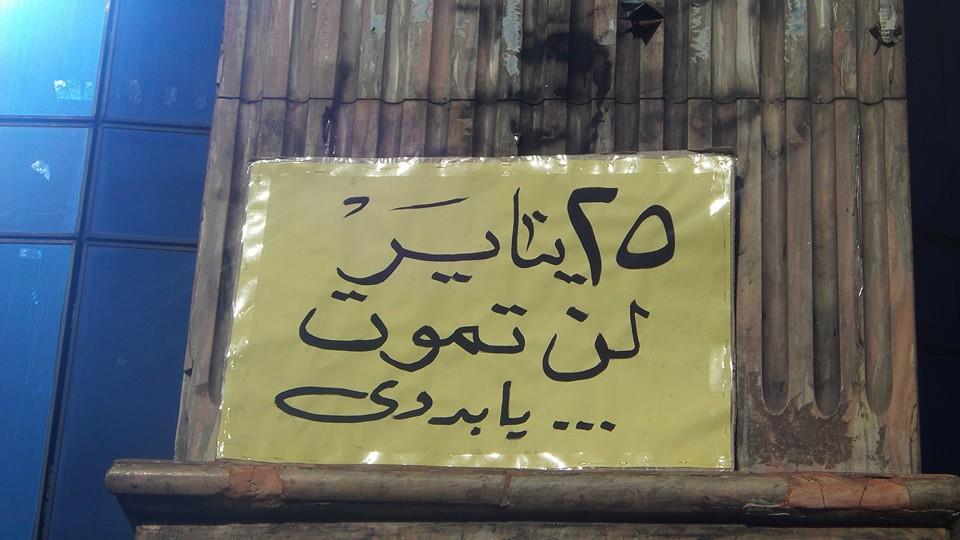 ٢٥ يناير
لن تموت
... يا بدوى